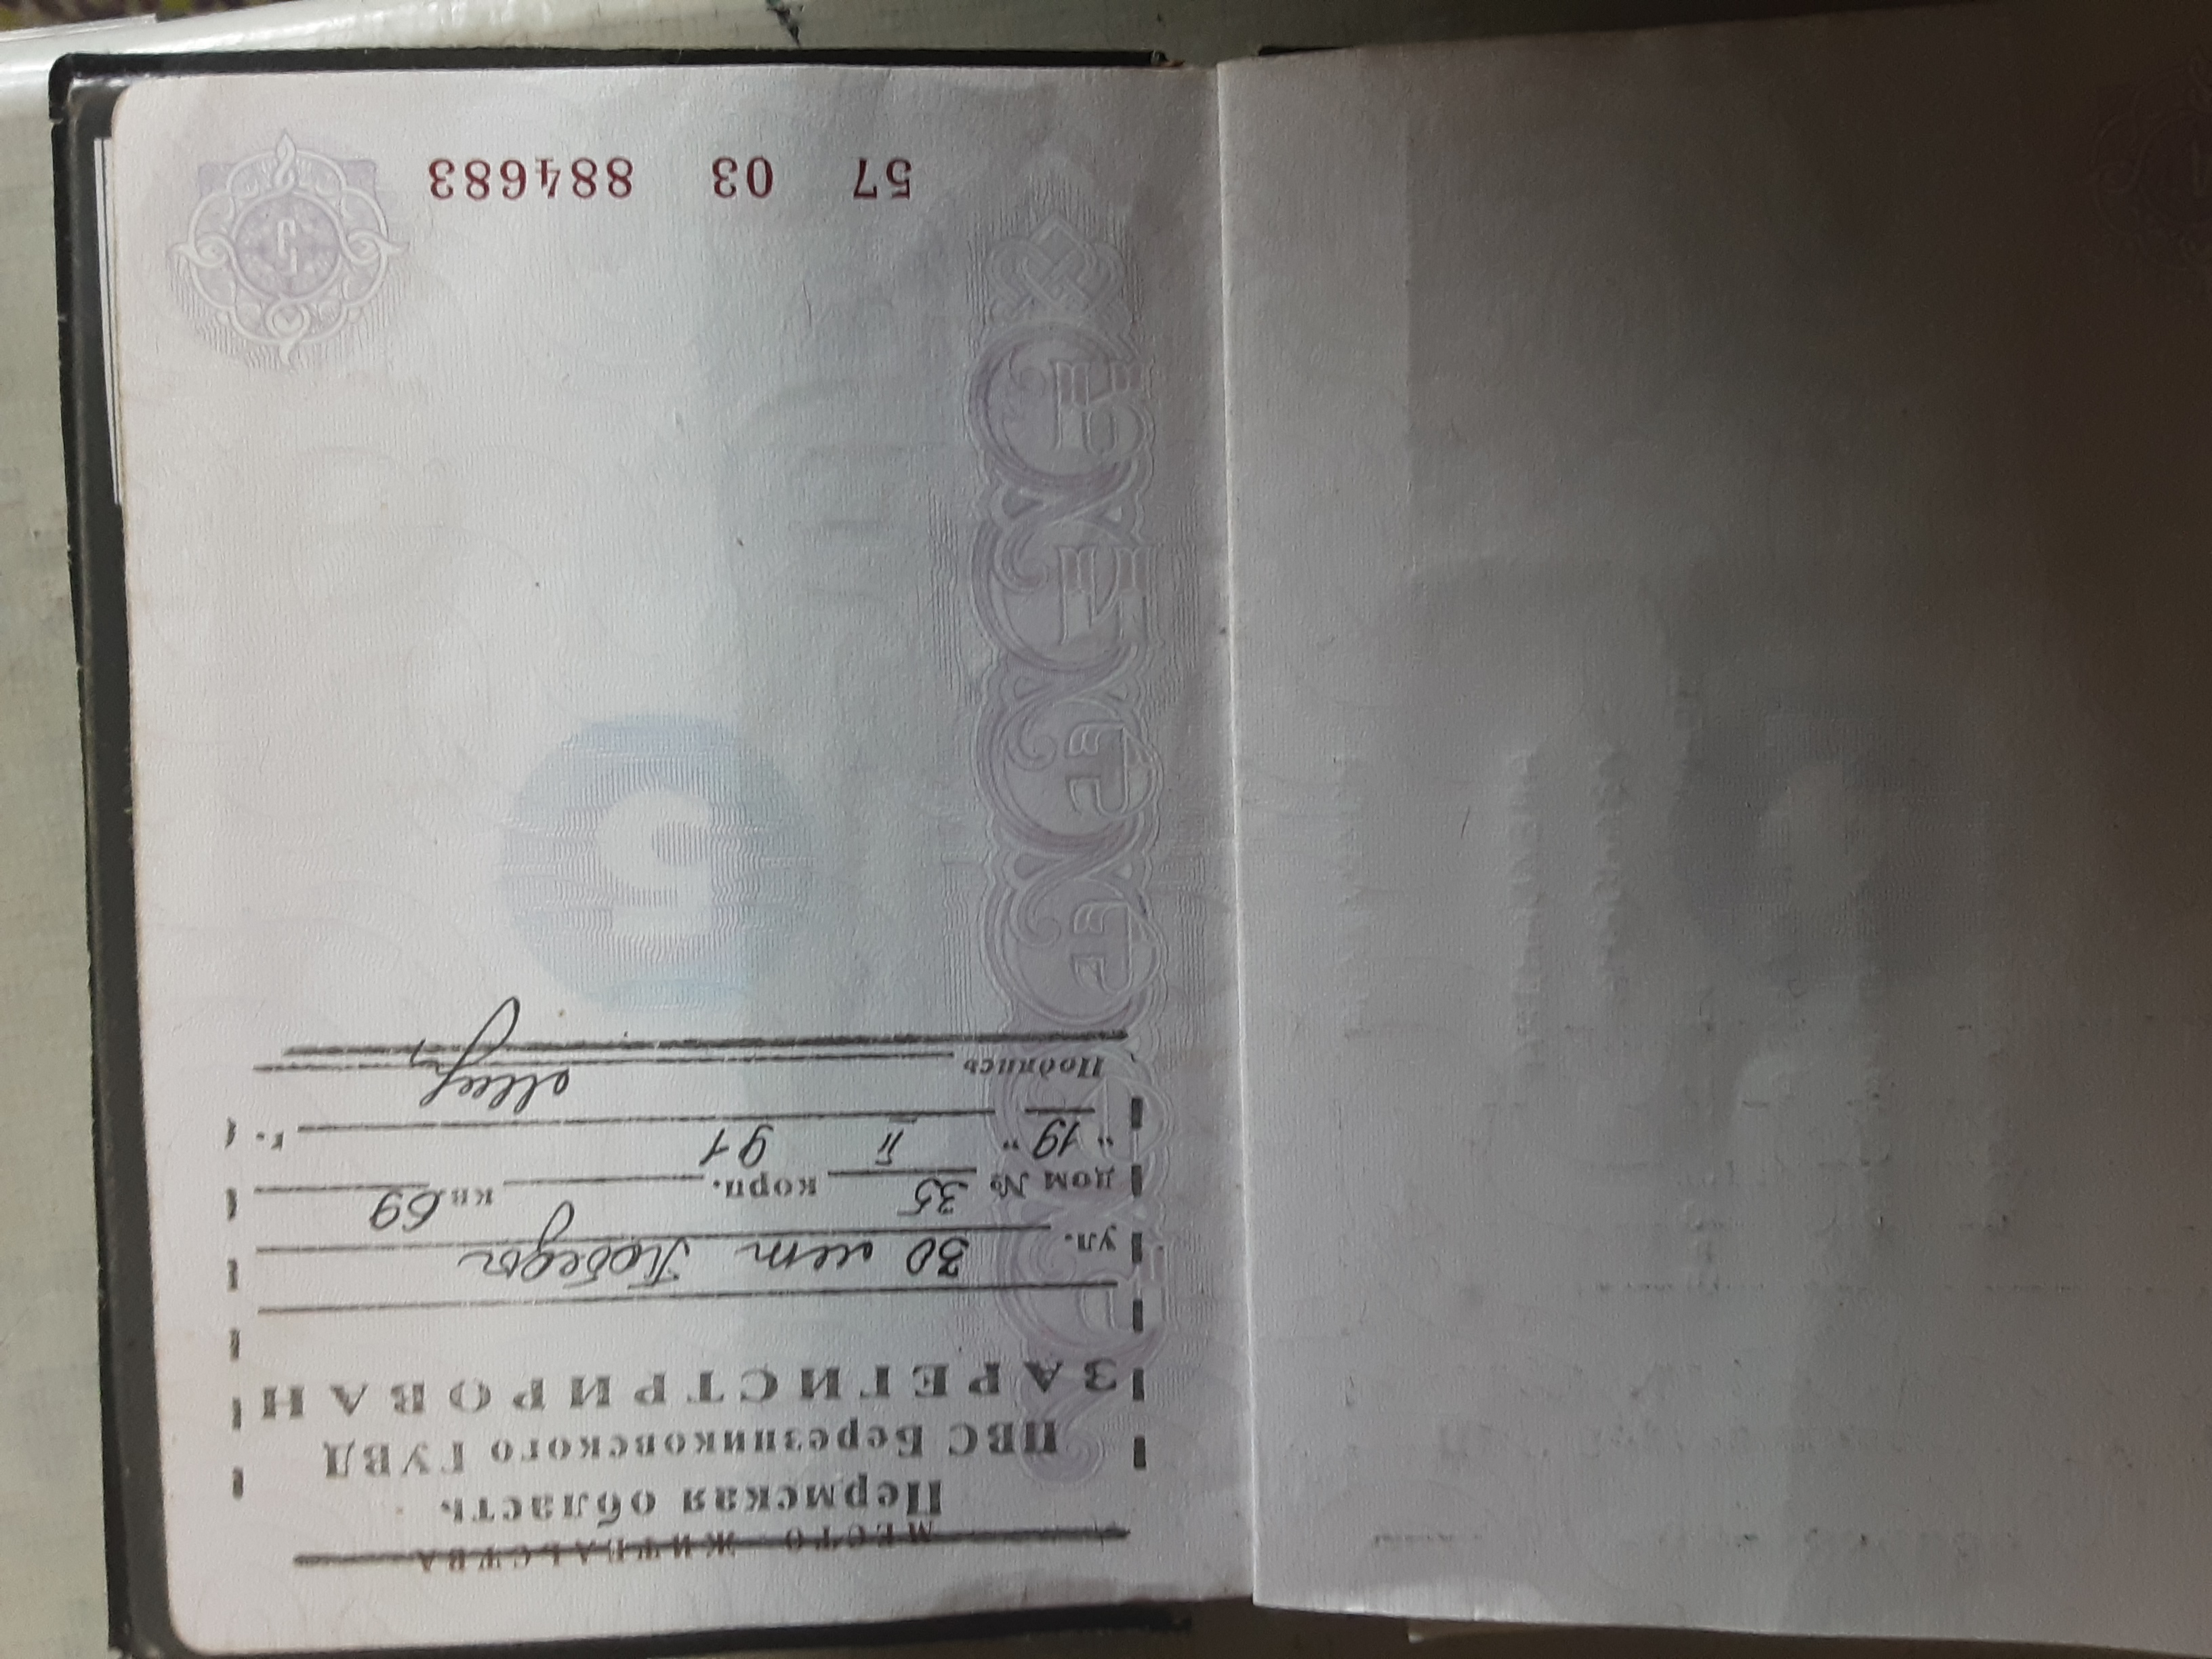 МЕСТО ЖИТЕЛЬСТВА
Пермская область
ПВС Березниковского ГУВД
ЗАРЕГИСТРИРОВАН
ул. 30 лет Победы
дом № 35 корп. кв. 69
"19" II 91 г.
Подпись
5
5
57 03 884683